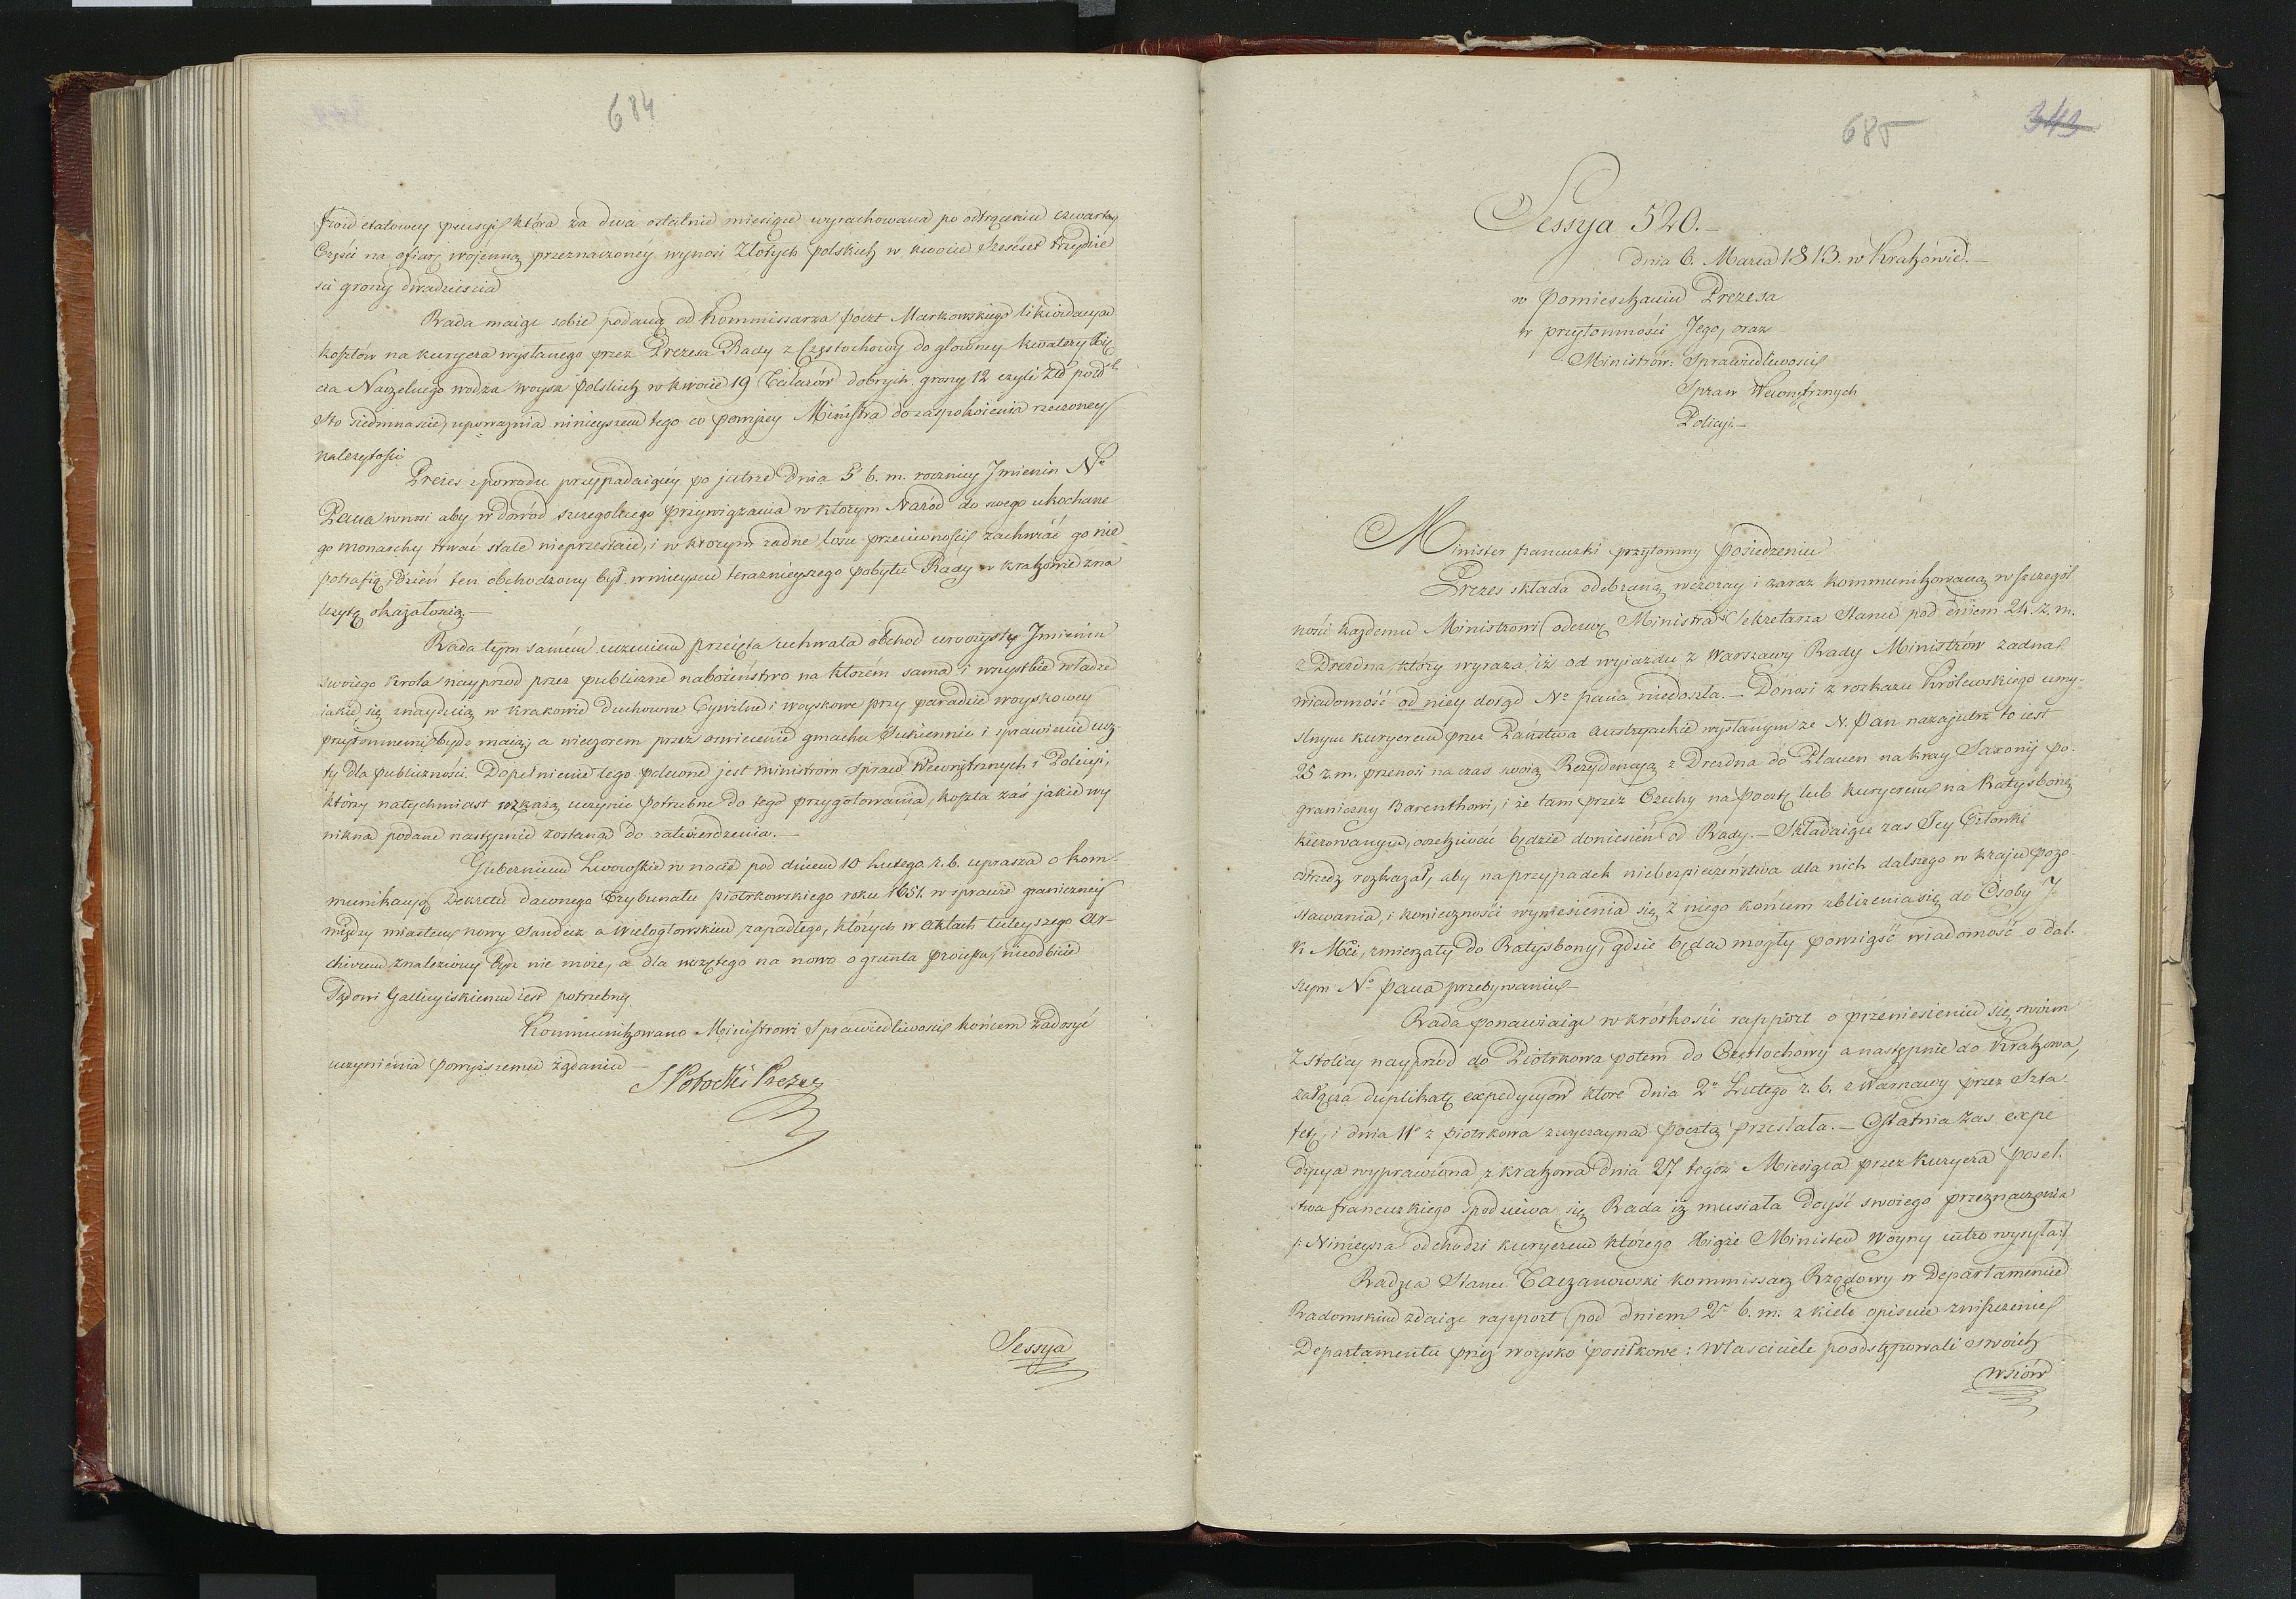 684
swoiey etatowey pensyi która za dwa ostatnie miesiące wyrachowana po odtrąceniu czwartey
Części na ofiarę wojenną przeznaczonéy wynosi Złotych polskich w kwocie sześćset trzydzie
ści groszy dwadzieścia
Rada maiąc sobie podaną od Kommissarza poczt Markowskiego likwidacya
kosztów na kuryera wysłanego przez Prezesa Rady z Częstochowy do główney kwatery Xię
cia Naczelnego wodza woysk polskich w kwocie 19 Talarów dobrych groszy 12 czyli Złp
sto siedmnaście, upoważnia ninieyszem tego co powyżey Ministra do zaspokoienia rzeczoney
należytości
Prezes z powodu przypadaiącéy po jutrze dnia 5 b. m. rocznicy Jmienin No
Pana wnosi aby w dowód szczegolnego przywiązania w którym Naród do swego ukochane
go monarchy trwać stale nieprzestaie, i w którym żadne losu przeciwności zachwiać go nie
potrafią, dzień ten obchodzony był w mieyscu teraznieyszego pobytu Rady w Krakowie zna
leżytą okazałością.—
Rada tym samém uczuciem przeięta uchwala obchod uroczysty Jmienin
swoiego Krola nayprzod przez publiczne nabożeństwo na którém sama i wszystkie władze
jakie się znayduią w Krakowie Duchowne Cywilne i woyskowe przy paradzie woyskowey
przytomnemi bydź maią; a wieczorem przez oswiecenie gmachu Sukiennic i sprawienie ucz-
ty dla publiczności. Dopełnienie tego polecone jest ministrom Spraw Wewnętrznych i Policyi,
którzy natychmiast rozkażą uczynić potrzebne do tego przygotowania, koszta zaś jakie wy
nikną podane następnie zostaną do zatwierdzenia.—
Gubernium Lwowskie w nocie pod dniem 10 Lutego r. b. uprasza o kom-
munikacyą Dekretu dawnego Trybunału piotrkowskiego roku 1651. w sprawie graniczney
między miastem nowy Sandecz a Wielogłowskim zapadłego, których w aktach tuteyszego Ar-
chiwum znaleziony bydź nie może, a dla wszczętego na nowo o grunta processu, nieodbicie
Sądowi Gallicyiskiemu iest potrzebny
Kommunikowano Ministrowi Sprawiedliwości końcem zadosyć
uczynienia powyższemu żądaniu—
S Potocki Prezes
Sessya
685
343
Sessya 520.—
dnia 6. Marca 1813. w Krakowie.—
w Pomieszkaniu Prezesa
w przytomności Jego, oraz
Ministrów: Sprawiedliwości
Spraw Wewnętrznych
Policyi.—
Minister francuzki przytomny posiedzeniu
Prezes składa odebraną wczoray i zaraz kommunikowaną w szczegól
ności każdemu Ministrowi odezwę Ministra Sekretarza Stanu pod dniem 24 z. m.
z Drezdna, który wyraża, iż od wyiazdu z Warszawy Rady Ministrów żadna
wiadomość od niey dotąd No pana niedoszła.— Donosi z rozkazu Królewskiego umy-
ślnym kuryerem przez Państwa Austryackie wysłanym że N. Pan nazajutrz to iest
25 z. m. przenosi na czas swoią Rezydencyą z Drezdna do Plauen na kray Saxonij po-
graniczny Bareuthowi, i że tam przez Czechy na pocztę lub kuryerem na Ratysbonę
kierowanym, oczekiwać będzie doniesień od Rady.— Składaiące zas Jey Członki
ostrzedz rozkazał, aby na przypadek niebezpieczeństwa dla nich dalszego w kraju pozo-
stawania, i konieczności wyniesienia się z niego końcem zbliżenia się do Osoby J.
K. Mci, zmierzały do Ratysbony, gdzie będą mogły powziąść wiadomość o dal-
szym No pana przebywaniu—
Rada ponawiaiąc w krótkości rapport o przeniesieniu się swoim
z stolicy nayprzod do Piotrkowa potem do Częstochowy a następnie do Krakowa,
załącza duplikatę expedycyów które dnia 2o Lutego r. b. z Warszawy przez Szta-
fetę, i dnia 11o z piotrkowa zwyczayną pocztą przesłała.— Ostatnia zas expe
dycya wyprawiona z Krakowa dnia 27 tegoż Miesiąca przez kuryera posel-
stwa francuzkiego spodziewa się Rada iż musiała dojść swoiego przeznaczenia
/: Ninieysza odchodzi kuryerem którego Xiąże Minister Woyny iutro wysyła:/
Radzca Stanu Taczanowski kommissarz Rządowy w Departamencie
Radomskim zdaiąc rapport pod dniem 2o b. m. z Kielc opisuie zniszczenie
Departamentu przez woysko posiłkowe: właściciele poodstępowali swoich
wsiów